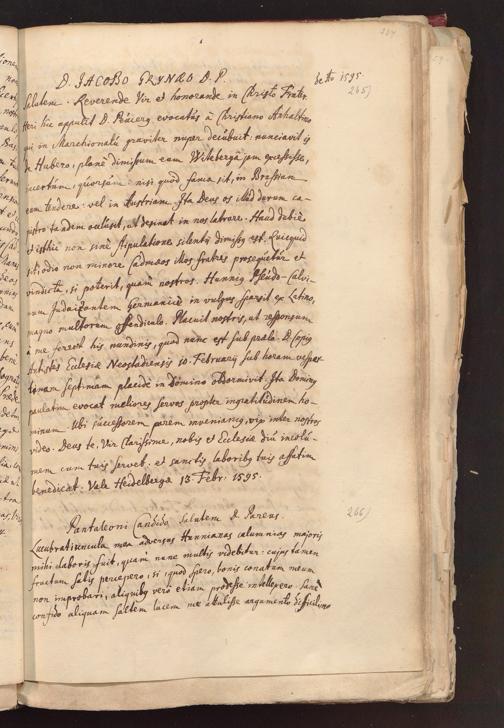 D. JACOBO GRYNÆO D. P.
de Ao 1595.
265)
Salutem. Reverende Vir et honorande in Christo Frater
Heri hic appulit D. evocatus à Christiano Anhaltino
qui in Marchionatu graviter nuper decubuit. nunciavit is
de Hubero, plane dimissum eum Witeberga jam
incertum, quorsum: nisi quod fama sit, in Prussiam
eum tendere vel in Austriam. Ita Deus os Mad durum ca-
pistro tandem occlusit, ut desinat in nos latrare. Haud dubie
et isthic non sine stipulatione silentij dimissus est. Quicquid
sit, odio non minore Cadmæos illos fratres prosequetur et
vindicta, si poterit, quam nostros. Hunnij Pseudo-Calvi-
num Judaizantem Germanicè in vulgus sparsit ex Latino,
magno multorum offendiculo. Placuit nostris, ut responsum
à me ferret his nundinis, quod nunc est sub prælo. D.
Antistes Ecclesiæ Neostadiensis 10. Februarij sub horam vesper-
tinam septimam placide in Domino obdormivit. Ita Dominus
paulatim evocat meliores servos propter ingratitudinem ho-
minum. Ubi successorem parem inveniamus, vix inter nostros
video. Deus te, Vir Clarissime, nobis et Ecclesiæ diu incolu-
mem cum tuis servet. et sanctis laboribus tuis affatim
benedicat. Vale Heidelberga 13. Febr. 1595.
266)
Pantaleoni Candido Salutem D. Pareus.
Lucubratiuncula mea adversus Hunnianas calumnias majoris
mihi laboris fuit, quam nunc multis videbitur: cujus tamen
fructum satis percepero, si, quod spero, bonis conatum meum
non improbari, aliquibus vero etiam prodesse intellexero. Sane
confido aliquam saltem lucem me attulisse argumento difficilimo